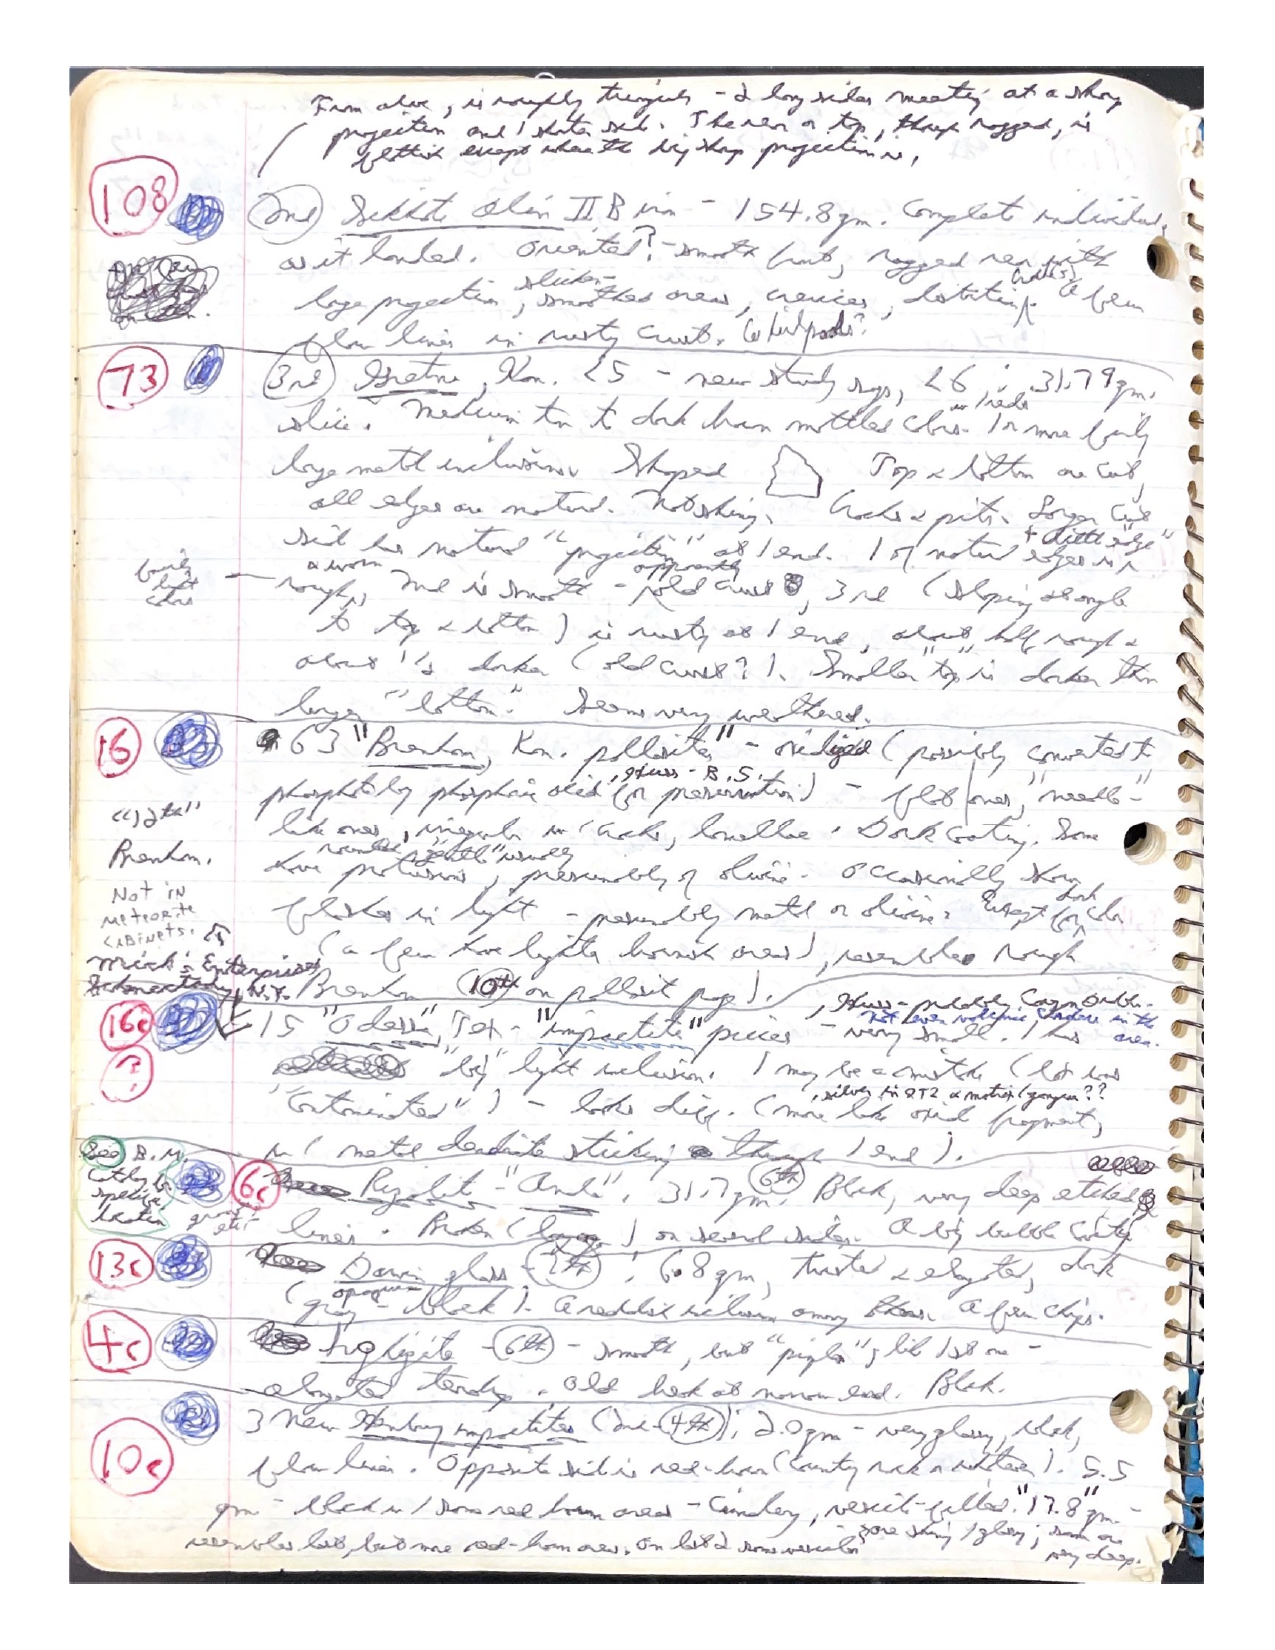 From above, is roughly triangular - 2 long sides meeting at a sharp
projection and 1 shorter side. The rear or top, though ragged, is
flattish except where the big sharp projection is.
108
2nd Sikhote Alin IIB iron - 154.8 gm. Complete individual,
as it landed. Oriented? - smooth front, ragged rear with
large projection, slicken- smoothed areas, crevices, (cracks), A few
flow lines in rusty crust. Whirlpools?
73
3rd Gretna, Kan. L5 - new study says, L6; 31.79 gm.
slice. Medium tan to dark brown mottled color w/reds. 1 or more fairly
large metal inclusions. Shaped Top & bottom are cut,
all edges are natural. Not shiny. Cracks & pits. Larger cut
side has natural "projection" at 1 end. + little "edge" 1 of natural edges is
fairly
light
color
rough, & worn 2nd is smooth - apparently old crust, 3rd (sloping at angle
to top & bottom) is rusty at 1 end, about half rough &
about 1/2 darker (old crust?). Smaller "top" is darker than
larger "bottom." Seems very weathered.
16
63 "Brenham, Kan. pallasites" - oxidized (possibly converted to
phosphate by phosphoric acid for preservation), Huss - B.S. - flat ones, "needle"-
like ones, irregular w/cracks, lamellae. Dark coating. Some
have rounded "gentle" usually protrusions, presumably of olivine. Occasionally show
flashes in light - presumably metal or olivine. Except for dark color
(a few have lighter brownish areas), resembles rough
Brenham (10th on pallasite page).
"12th"
Brenham.
Not in
meteorite
cabinets.
Mick's Enterprises
Schenectady, N.Y.
16c
?
15 "Odessa", Tex - "impactite" pieces - very small. 1 has
, Huss - probably
Not even volcanic cinders in the
area.
"big" light inclusion. 1 may be a mistake (lot was
"contaminated") - looks diff. (more like oxid fragment,
w/ metal dendrite sticking through 1 end).
See B.M.
Catalog for
specific
location
6c
Rizalite - "Anda", 31.7 gm. 6th Black, very deep etched
lines. Broken on several sides. A big bubble cavity
13c
Darwin glass - 2th, 6.8 gm, twisted & elongated, dark
(gray - opaque black). A reddish inclusion among them. A few chips.
4c
Agligite - 6th - smooth, but "pingles", like 1st one -
elongated teardrop. Old break at narrow end. Black.
10c
3 new Henbury impactites (2nd-4th); 2.0 gm - very glassy, black,
flow lines. Opposite side is red-brown (country rock or whatever). 5.5
gm - black w/ some red brown areas - cindery, vesicle-filled. "17.8" gm. -
resembles last, but more red-brown areas. On last 2 some vesicles
are shiny/glassy; some are
very deep.